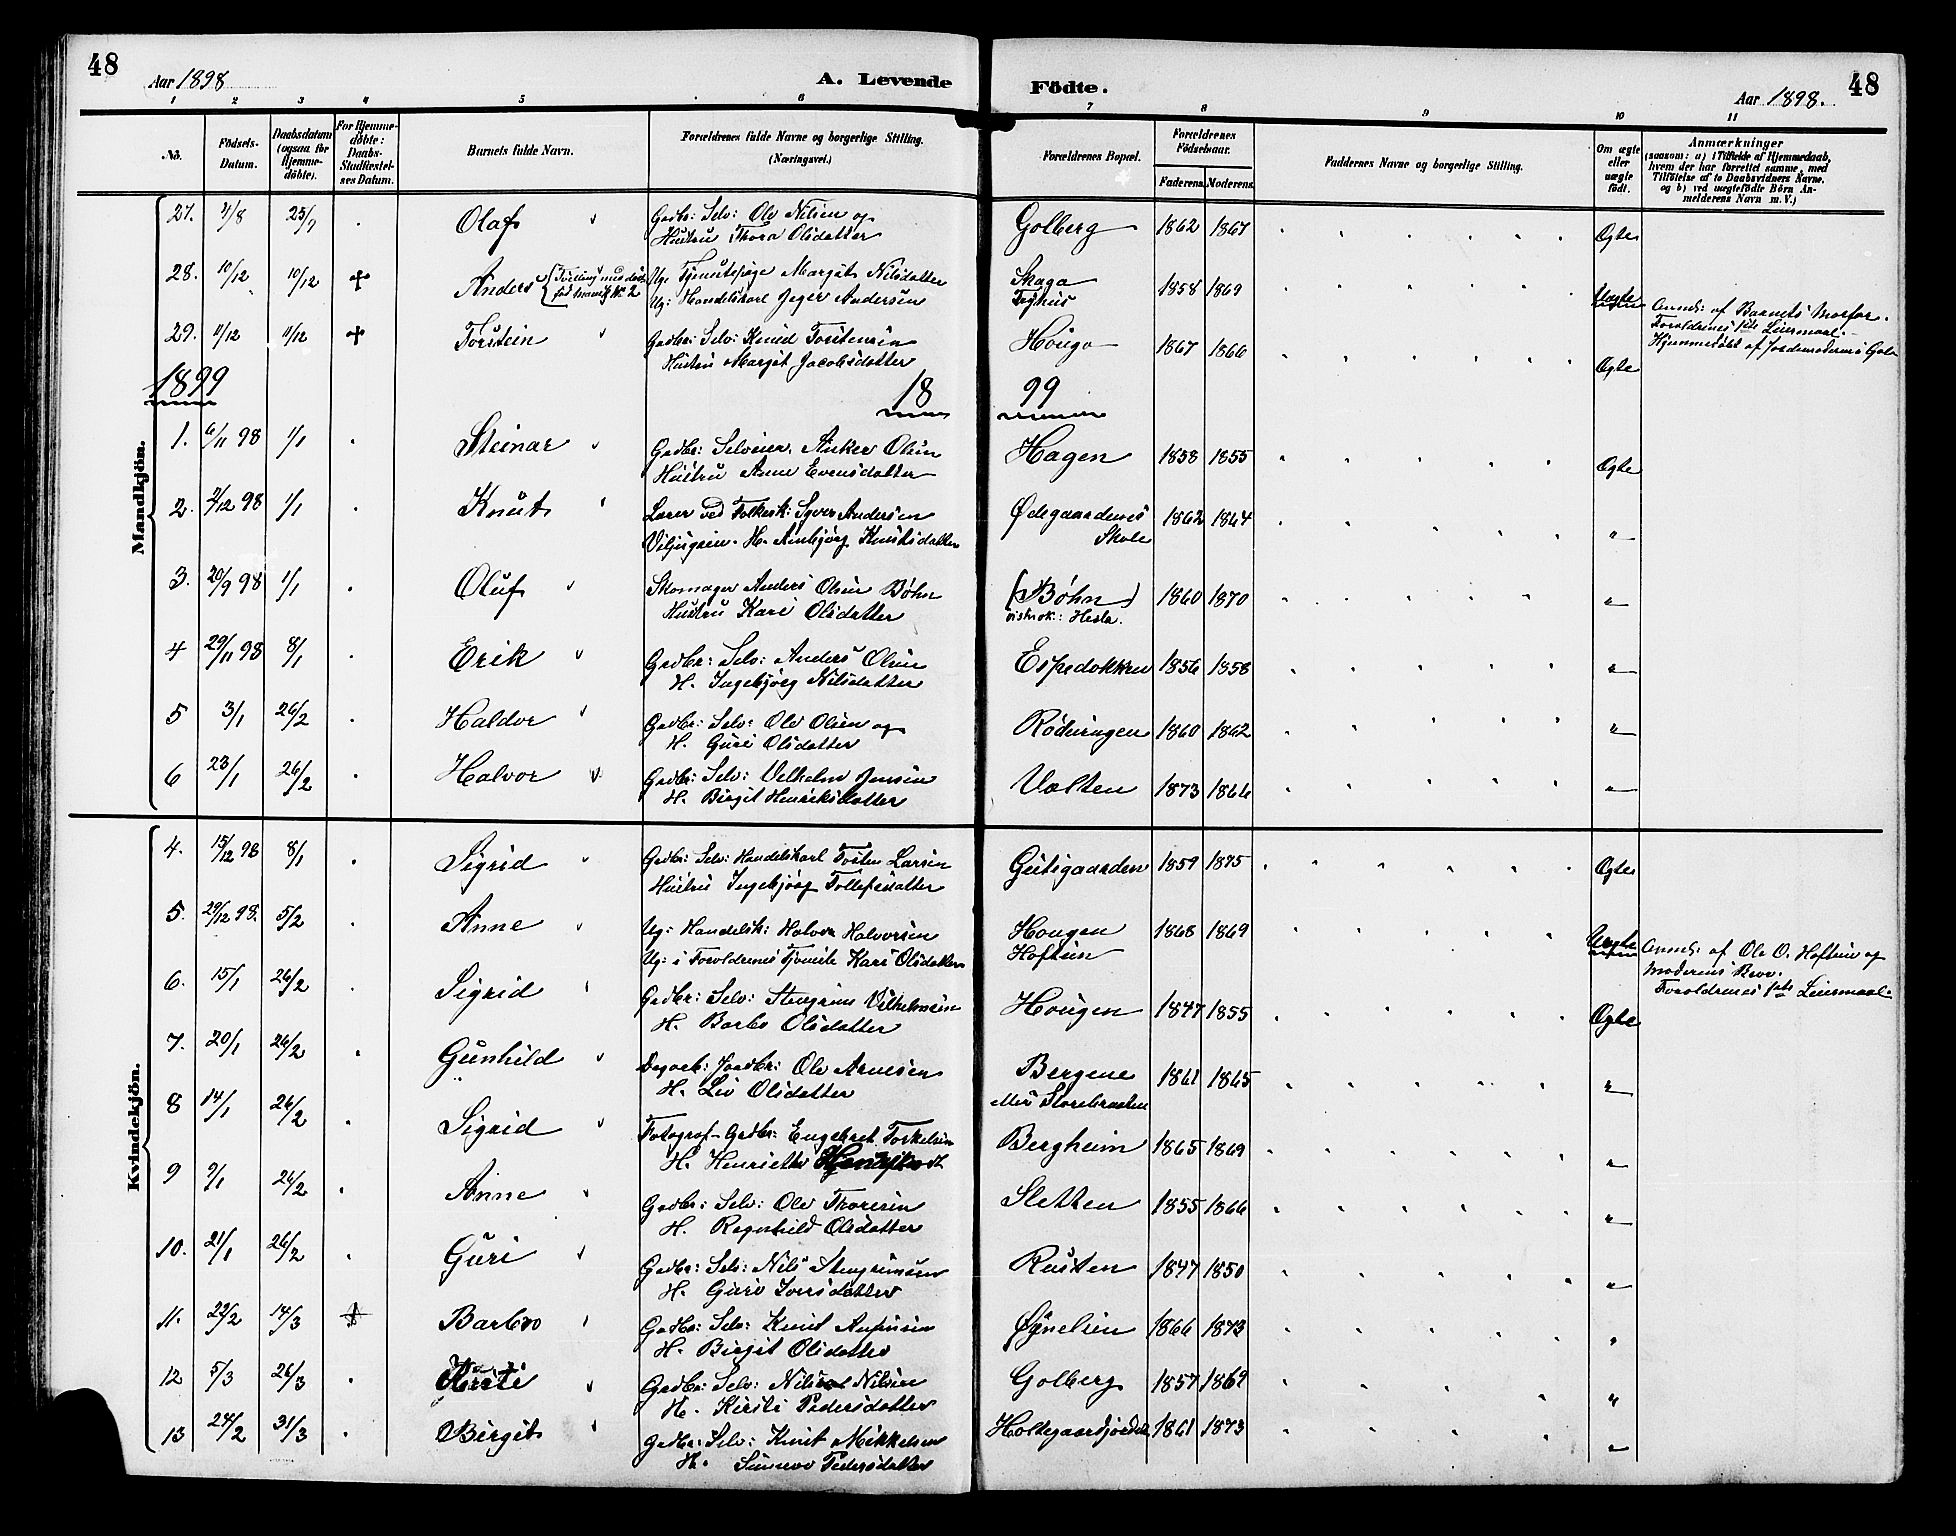 48
Aar 1898
A. Levende Födte.
Aar 1898.
48
1 2 3 4 5 6 7 8 9 10 11
No.
Födsels-Datum.
Daabsdatum (ogsaa for Hjemme-döbte).
For Hjemme-döbte: Daabs-Stadfæstel-ses Datum.
Barnets fulde Navn.
Forældrenes fulde Navne og borgerlige Stilling. (Næringsvei.)
Forældrenes Bopæl.
Forældrenes Födselsaar.
Faderens. Moderens.
Faddernes Navne og borgerlige Stilling.
Om ægte eller uægte födt.
Anmærkninger
(saasom: a) i Tilfælde af Hjemmedaab, hvem der har forrettet samme, med Tilföielse af to Daabsvidners Navne, og b) ved uægtefödte Börn An-melderens Navn m. V.)
Mandkjön.
27. Olaf Gadbr: Selv: Ole Nilsen og Golberg 1862 1867 Ægte
Hustru Thora Olsdatter
28. 10/12 10/12 Anders Ug: Tjenestepige Margit Nilsdatter Skaga 1858 1869 Uægte Anmeldt af Barnets Morfar.
Ug: Handelskarl Andersen
Forældrenes 1ste Leiermaal.
29. 11/12 11/12 Torstein Gadbr: Selv: Knud Torstensen 1867 1866 Ægte
Hustru Margit Jacobsdatter
Hjemmedøbt af
1899
18 99
1. 6/11 98 1/1 Steinar Gadbr: Selveier. Anker Olsen Hagen 1858 1855 Ægte
Hustru Anne Evensdatter
2. 98 1/1 Knut Lærer ved Folkesk: Syver Andersen Ødegaardenes 1862 1864 "
H. Knutsdatter Skole
3. 20/9 98 1/1 Oluf Skomager Anders Olsen Bøhn (Bøhn) 1860 1870 "
Hustru Kari Olsdatter Hesla.
4 29/11 98 8/1 Erik Gadbr: Selv: Anders Olsen Espedokken 1856 1858 "
H. Ingebjørg Nilsdatter
5 3/1 26/2 Haldor Gadbr: Selv: Ole Olsen og 1860 1862 "
H. Guri Olsdatter
6 23/1 26/2 Halvor Gadbr: Selv: Vilhelm Jensen 1873 1866 "
H. Birgit Henriksdatter
Kvindekjön.
4. 15/12 98 8/1 Sigrid Gadbr: Selv: Handelskarl Tosten Larsen Geitsgaarden 1859 1875 Ægte
Hustru Ingebjørg Tollefsdatter
5. 29/12 98. 5/2 Anne Ug: Handelsk: Halvor Halvorsen Hougen 1868 1869 Uægte Anmeldt af Ole O. Hoftun og
Ug: i Forældrenes Tjeneste Kari Olsdatter Hoftun
Moderens Bror.
Forældrenes 1ste Leiermaal.
6. 15/1 26/2 Sigrid Gadbr: Selv: Stengrim Vilhelmsen Hougen 1847 1855 Ægte
H. Barbo Olsdatter
7. 20/1 26/2 Gunhild Dagarb: Jordbr: Ole Arnesen Bergene 1861 1865 "
H. Liv Olsdatter eller Storebraaten
8 14/1 26/2 Sigrid Fotograf - Gadbr: Engebret Torkelsen Bergheim 1865 1869 "
H. Henriette
9 9/1 26/2 Anne Gadbr: Selv: Ole Thoresen Sletten 1855 1866 "
H. Ragnhild Olsdatter
10. 21/1 26/2 Guri Gadbr: Selv: Nils Stengrimsen Rusten 1847 1850 "
H. Guri Iversdatter
11. 22/2 14/3 Barbro Gadbr: Selv: Knut 1866 1873 "
H. Birgit Olsdatter
12 5/3 26/3 Kirsti Gadbr: Selv: Nilsen Golberg 1857 1869 "
H. Kirsti Pedersdatter
13 24/2 31/3 Birgit Gadbr: Selv: Knut Mikkelsen 1861 1873 "
H. Sunnov Pedersdatter